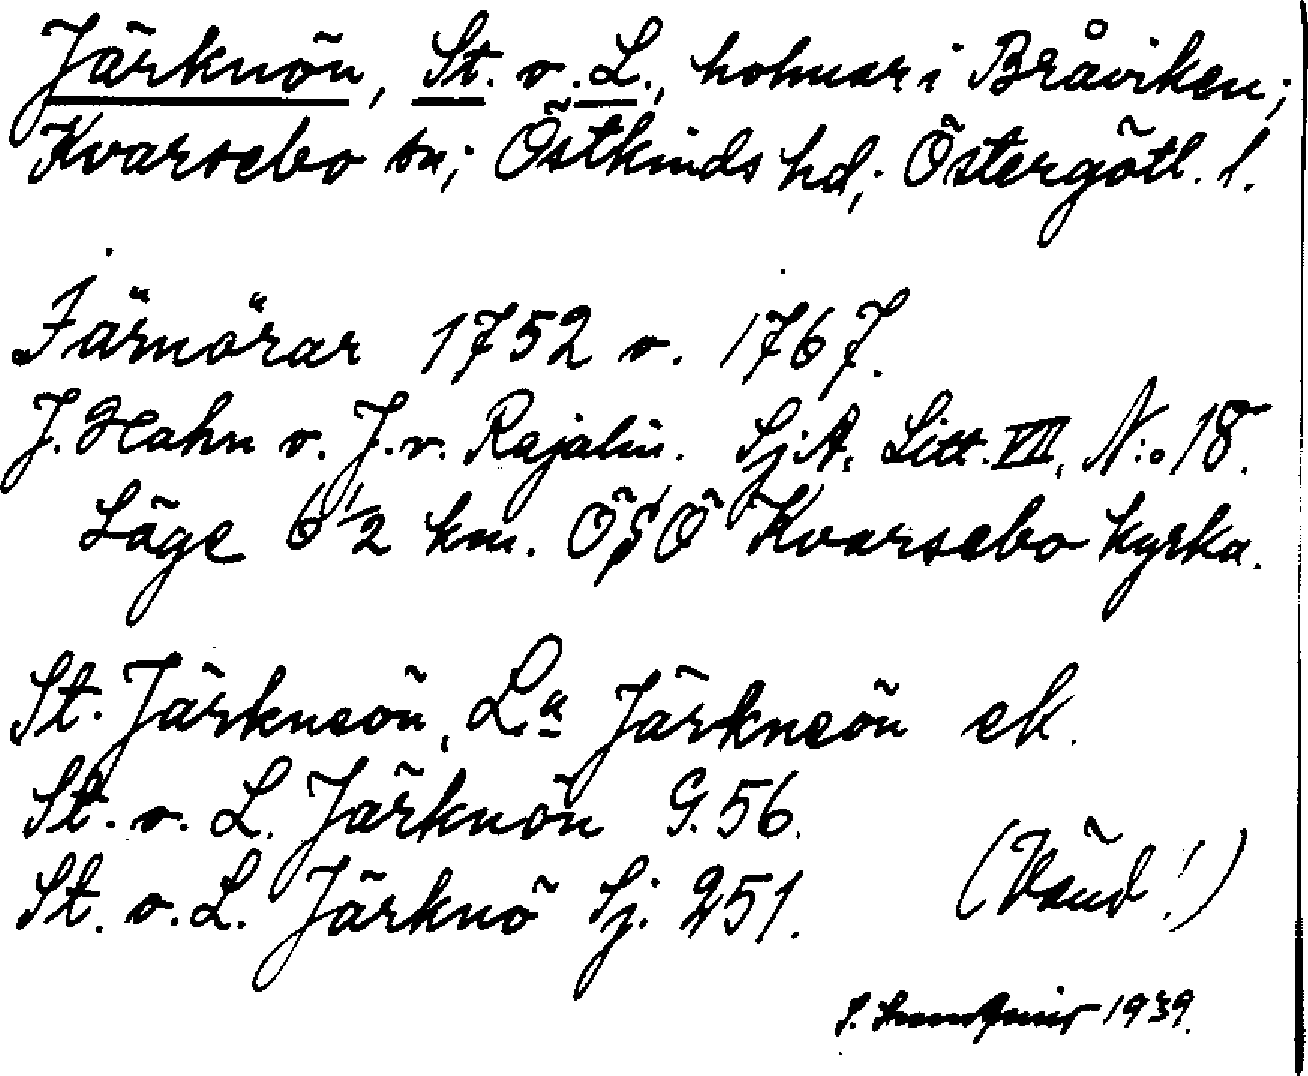 Järknön, St. o. L., holmar i Bråviken;
Kvarsebo sn; Östkinds hd; Östergötl. l.
Järnörar 1752 o. 1767.
J. Hahn o. J. v. Rajalin. Sj.A. Litt. VII, N:o 18.
Läge 6 1/2 km. ÖSÖ Kvarsebo kyrka.
St. Järkneön, La Järkneön ek.
St. o. L. Järknön G. 56.
St. o. L. Järknö Sj. 251.
(Vänd!)
S. 1939.